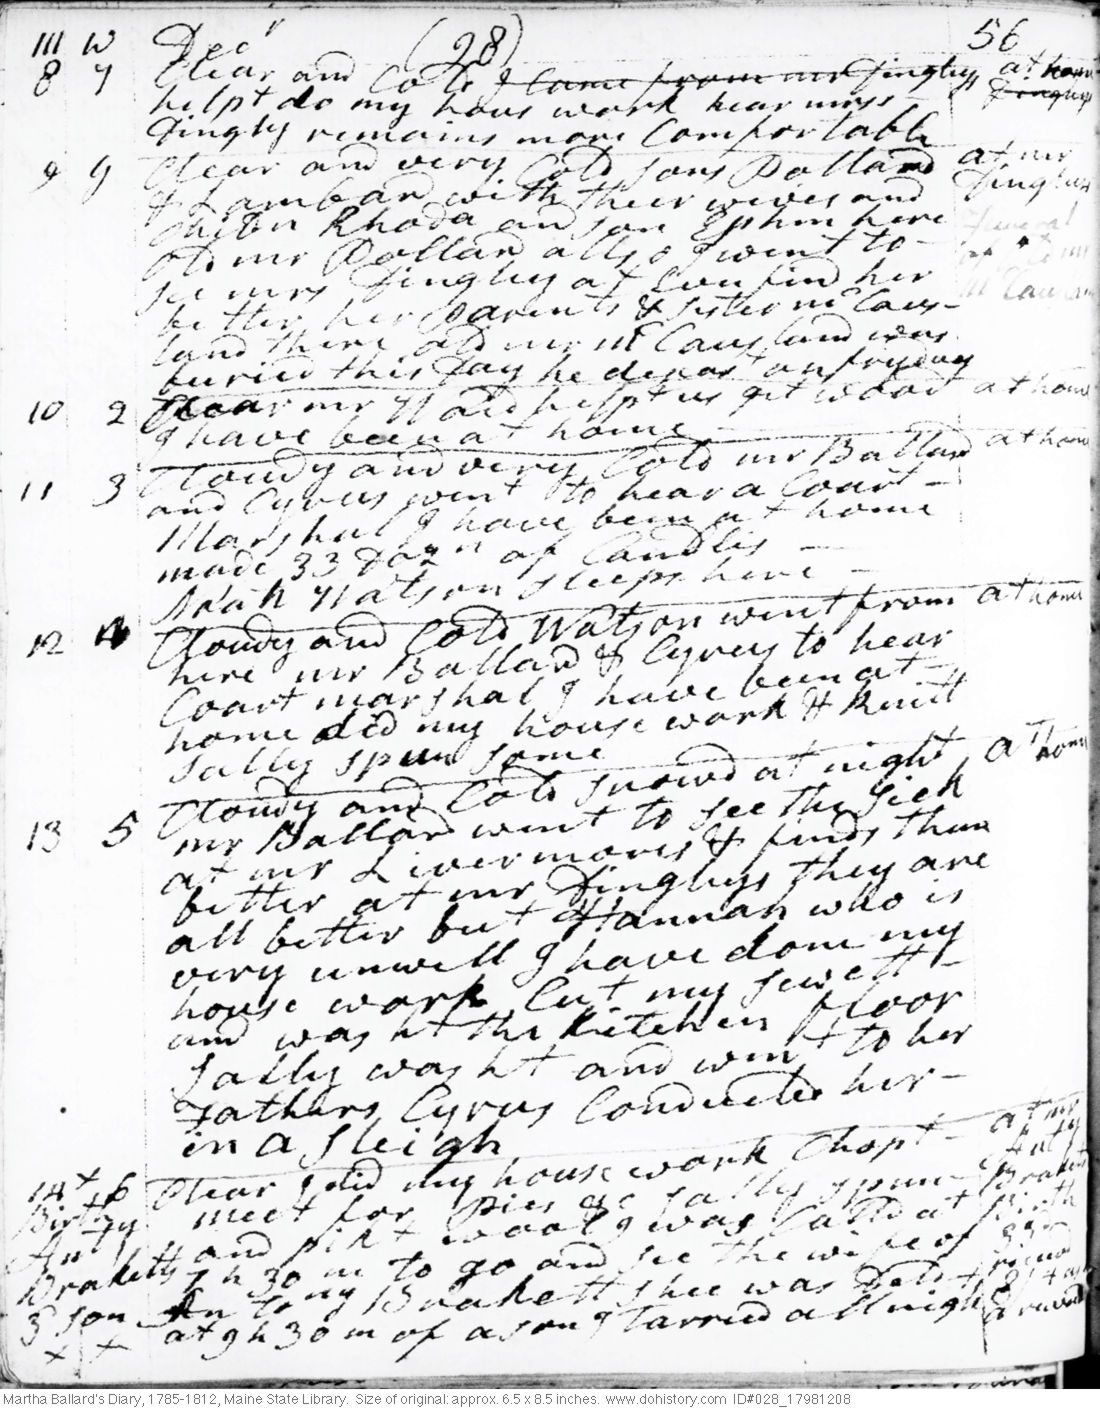 M W Decr (28) 56
8 7 Clear and Cold I Came from mr Dinglys at home
helpt do my hous work hear mrss Dinglys
Dingly remains more Comfortable
9 G Clear and very Cold sons Pollard at mr
& Lambard with their wives and Dinglys
Chiln Rhoda and son Ephm here funeral
old mr Pollard allso I went to of old mr
see mrs Dingley at Evn find her McCausland
better, her Parents & sister mcCaus-
land there old mr McCausland was
buried this Day he depart on fryday
10 2 Clear mr Waid helpt us git wood at home
I have been at home
11 3 Cloudy and very Cold mr Ballard at home
and Cyrus went to hear a Court-
Marshal I have been at home
made 33 Dozn of Candles
Noah Watson sleeps here
12 4 Cloudy and Cold Watson went from at home
here mr Ballard & Cyrus to hear
Court marshal I have been at
home did my house work & knitt
Sally spun some
13 5 Cloudy and Cold snowd at night at home
mr Ballard went to see the sick
at mr Livermores & finds them
better at mr Dinglys they are
all better but Hannah who is
very unwell I have done my
house work Cut my
and washt the kitchen floor
Sally washt and went to her
Fathers Cyrus Conducted her
in a sleigh
14 x 6 Clear I did my house work Chopt at mr
Birth 74 meet for Pies &c Sally spun Brakets
An and pikt wool I was Calld at Birth
Braketts 7 h 30 m to go and see the wife of 33d
3d son Antony Brakett shee was Deld
x x at 9 h 30 m of a son I Tarried all night